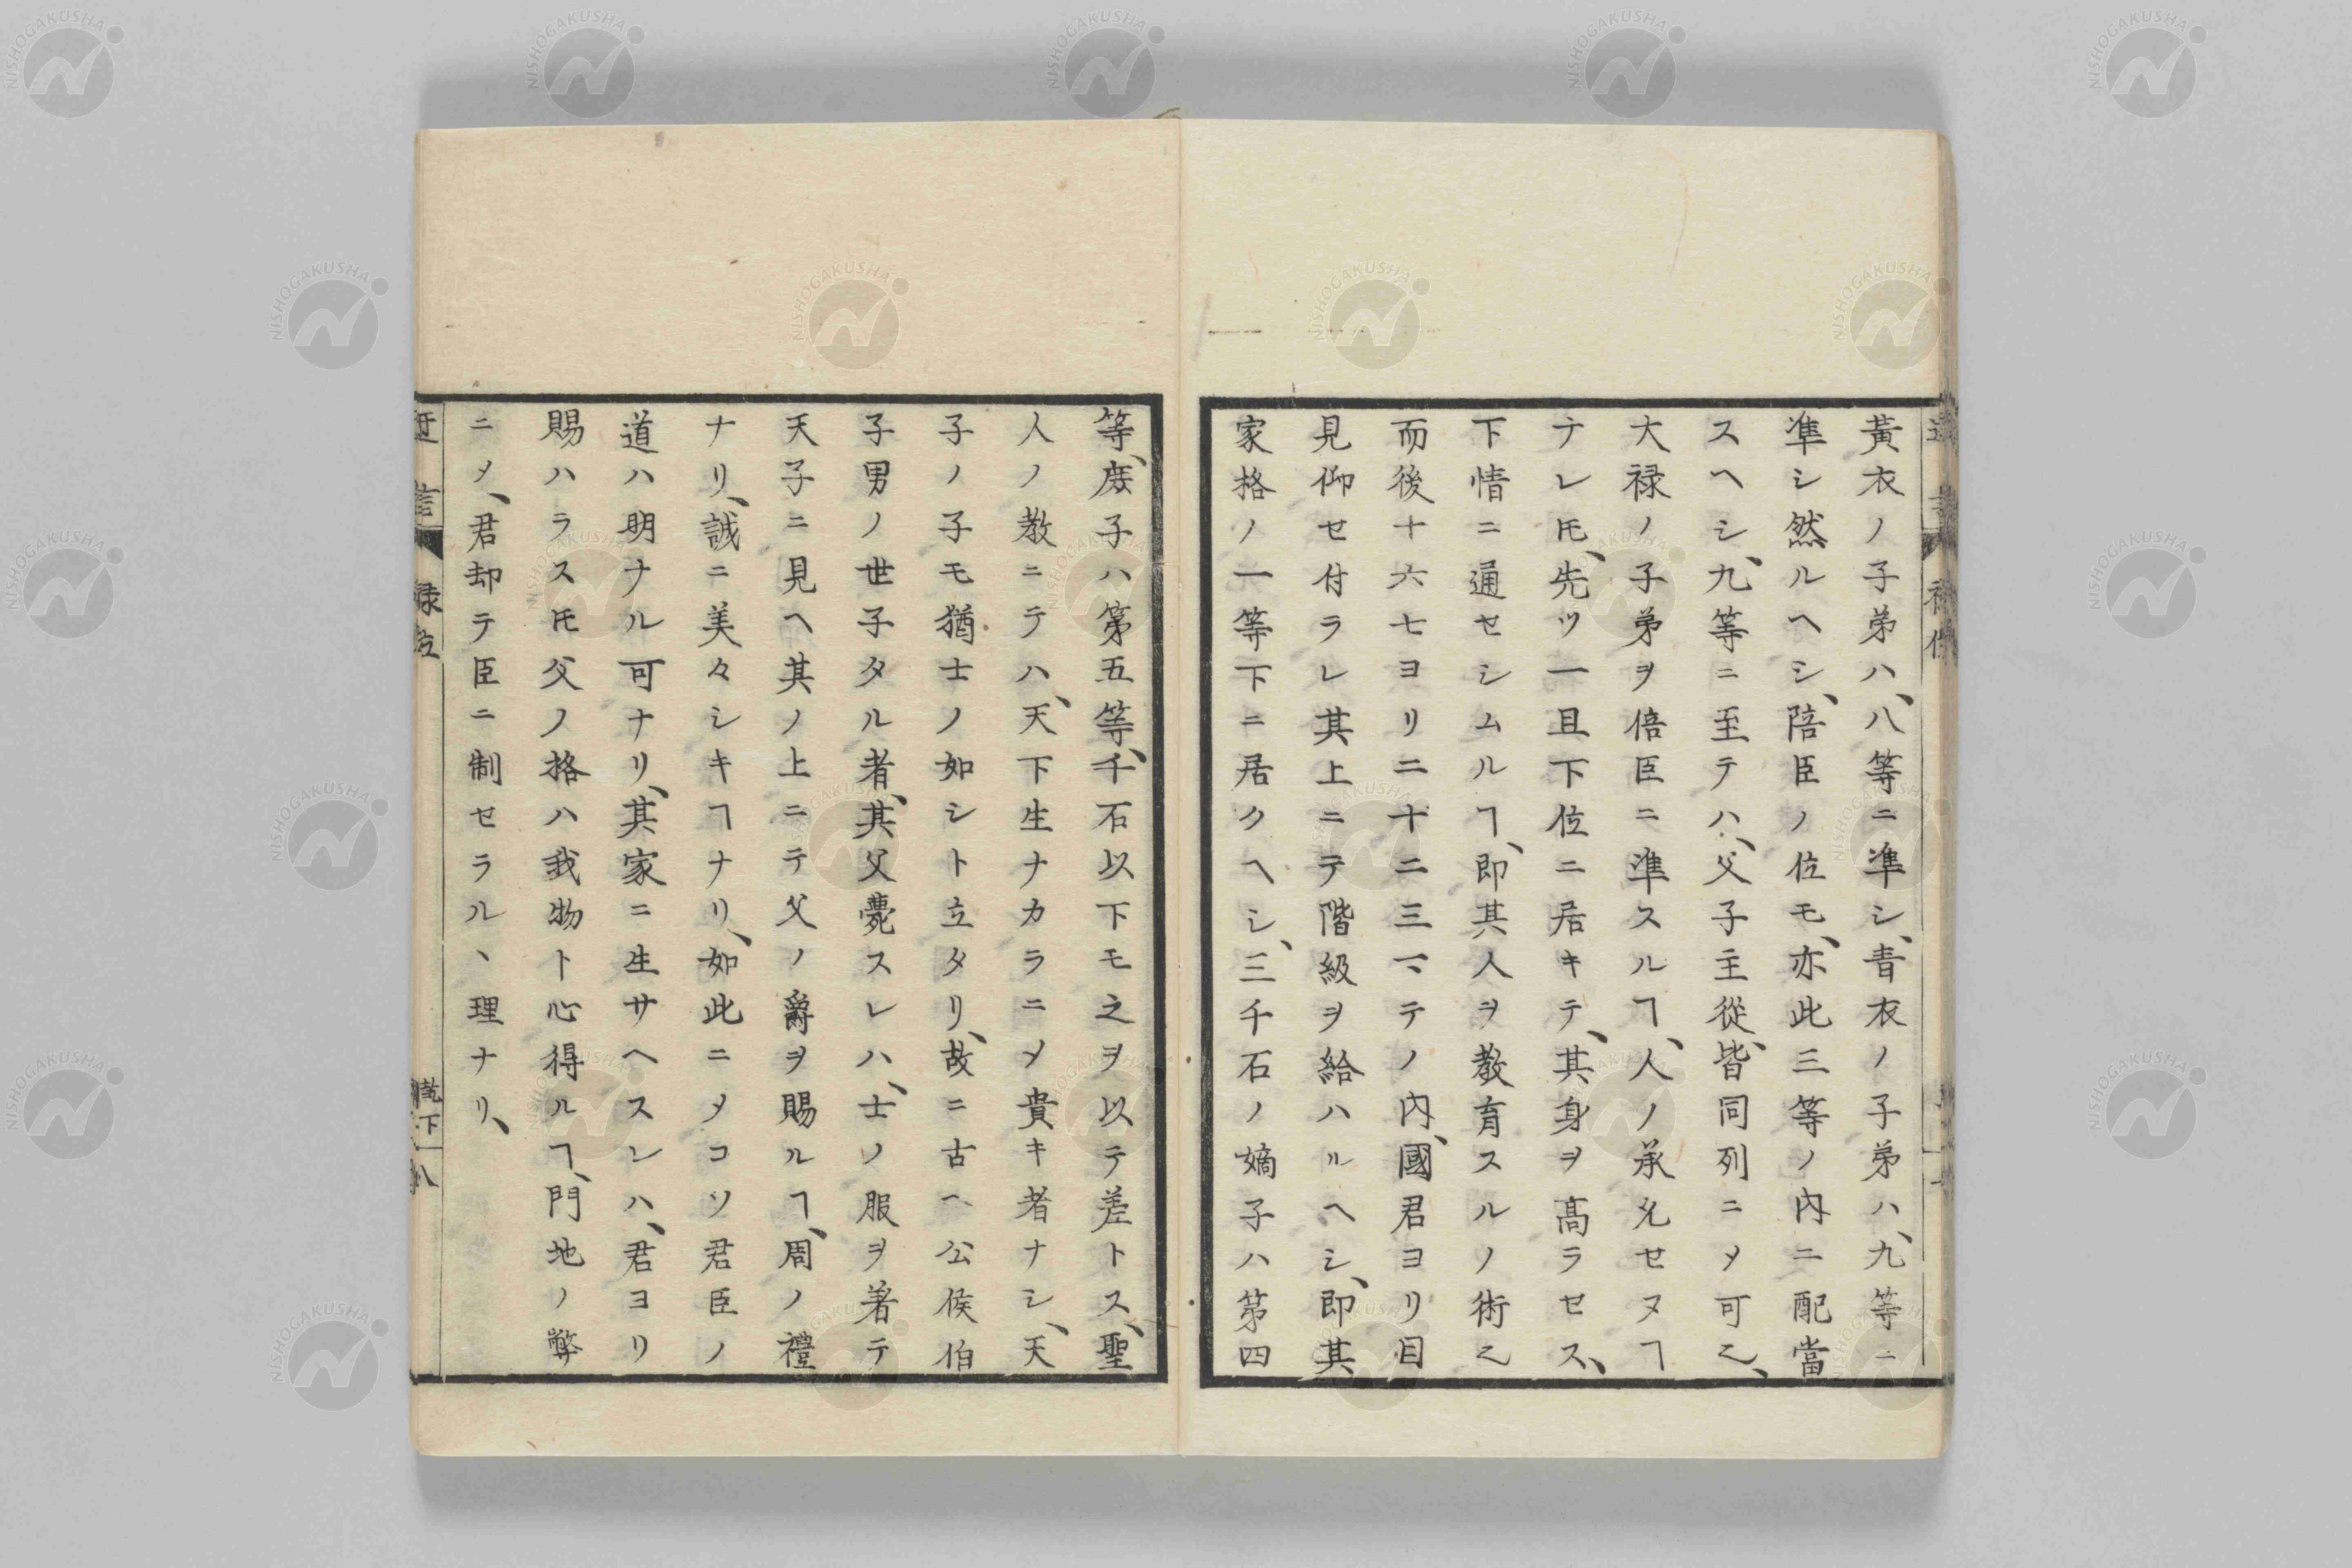 黃衣ノ子弟ハ、八等ニ準シ、青衣ノ子弟ハ、九等ニ
準シ然ルヘシ、陪臣ノ位モ、亦此三等ノ内ニ配當
スヘシ、九等ニ至テハ、父子主從、皆同列ニ〆可之、
大禄ノ子弟ヲ倍臣ニ準スルヿ、人ノ承允セヌヿ
テレ𪜈、先ツ一且下位ニ居キテ、其身ヲ高ラセス、
下情ニ通セシムルヿ、即其人ヲ教育スルノ術之
而後十六七ヨリ二十二三マテノ内、國君ヨリ目
見仰セ付ラレ其上ニテ階級ヲ給ハルヘシ、即其
家格ノ一等下ニ居クヘシ、三千石ノ嫡子ハ第四
等、庻子ハ第五等、千石以下モ之ヲ以テ差トス、聖
人ノ教ニテハ、天下生ナカラニ〆貴キ者ナシ、天
子ノ子モ猶士ノ如シト立タリ、故ニ古ヘ公侯伯
子男ノ世子タル者、其父薨スレハ、士ノ服ヲ著テ
天子ニ見ヘ其ノ上ニテ父ノ爵ヲ賜ルヿ、周ノ禮
ナリ、誠ニ美々シキヿナリ、如此ニ〆コソ君臣ノ
道ハ明ナル可ナリ、其家ニ生サヘスレハ、君ヨリ
賜ハラス𪜈父ノ格ハ我物ト心得ルヿ、門地ノ弊
ニ〆、君却テ臣ニ制セラルヽ理ナリ、
NISHOGAKUSHA